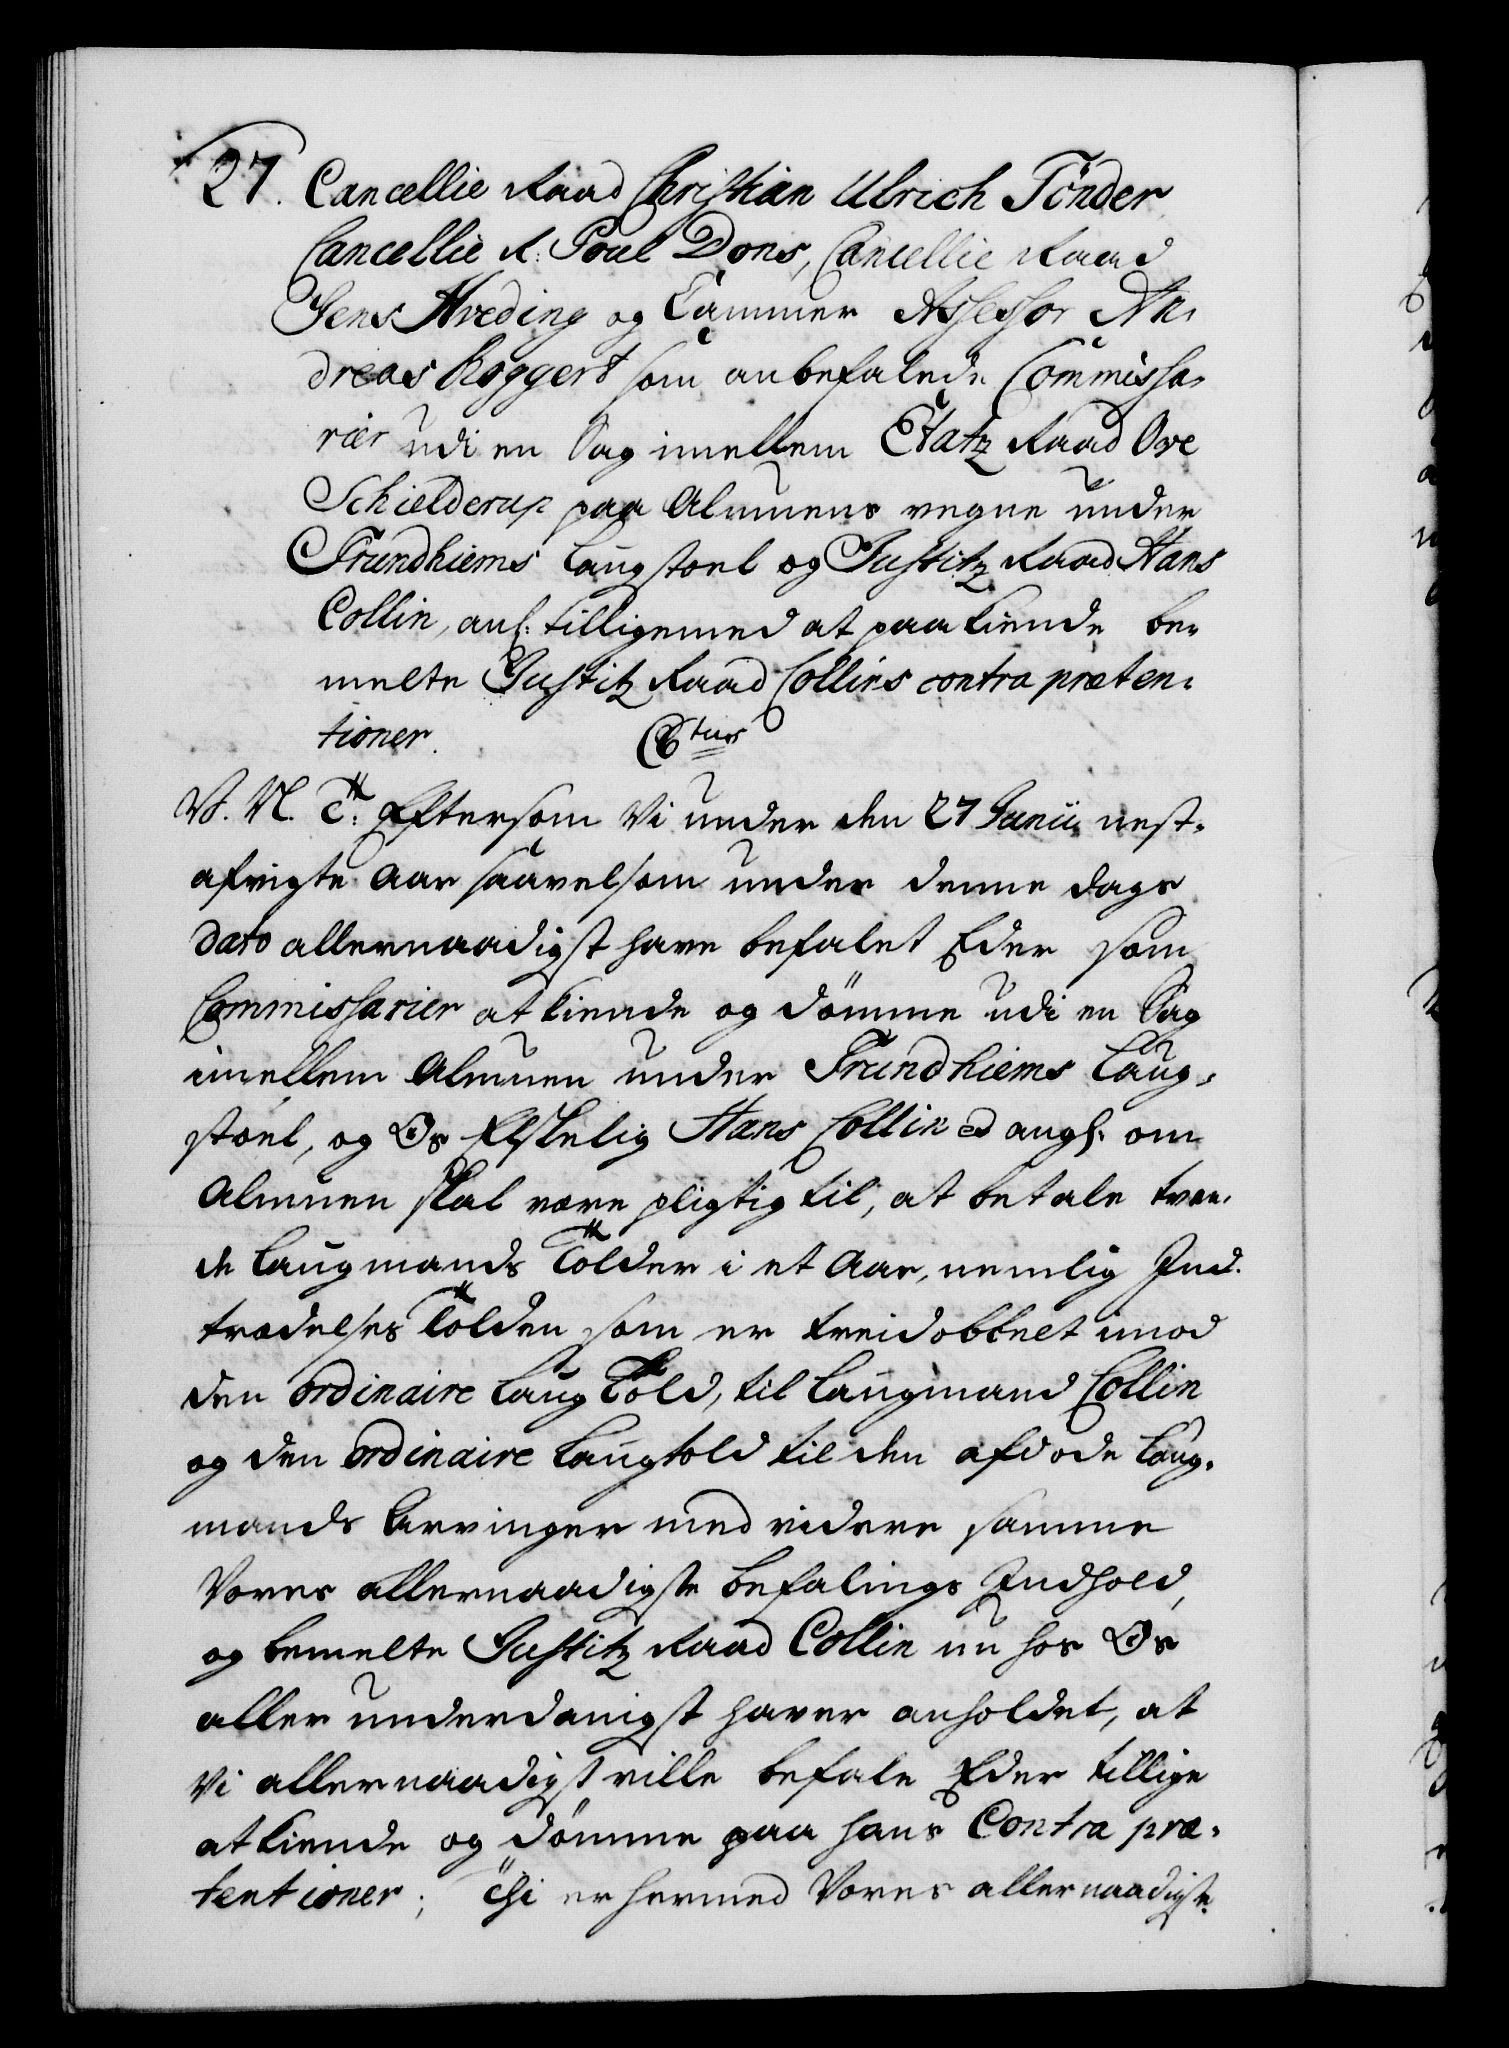 27. Cancellie Raad Christian Ulrich Tönder
Cancellie R: Poul Dons, Cancellie Raad
Jens Hveding og Cammer Assessor An-
dreas Roggert som anbefalede Commissa-
rier udi en Sag imellem Etatz Raad Ove
Schielderup paa Almuens vegne under
Trundhiems Laugstoel og Justitz Raad Hans
Collin, anl: tilligemed at paakiende be-
melte Justitz Raad Collins contra præten-
tioner. Ctus
V. N. T: Eftersom Vi under den 27 Junii nest-
afvigte Aar saavelsom under denne Dags
Dato allernaadigst have befalet Eder som
Commissarier at kiende og dömme udi en Sag
imellem Almuen under Trundhiems Laug-
stoel, og Os Elskelig Hans Collin ang: om
Almuen skal være pligtig til, at betale tven-
de Laugmands Tolder i et Aar, nemlig Ind-
trædelses Tolden som er treidobbelt imod
den ordinaire Laug Told, til Laugmand Collin
og den ordinaire Laugtold til den afdöde Laug-
mands Arvinger med videre samme
Vores allernaadigste befalings Indhold,
og bemelte Justitz Raad Collin nu hos Os
aller underdanigst haver anholdet, at
Vi allernaadigst ville befale Eder tillige
at kiende og dömme paa hans Contra præ-
tentioner; Thi er hermed Vores allernaadigste